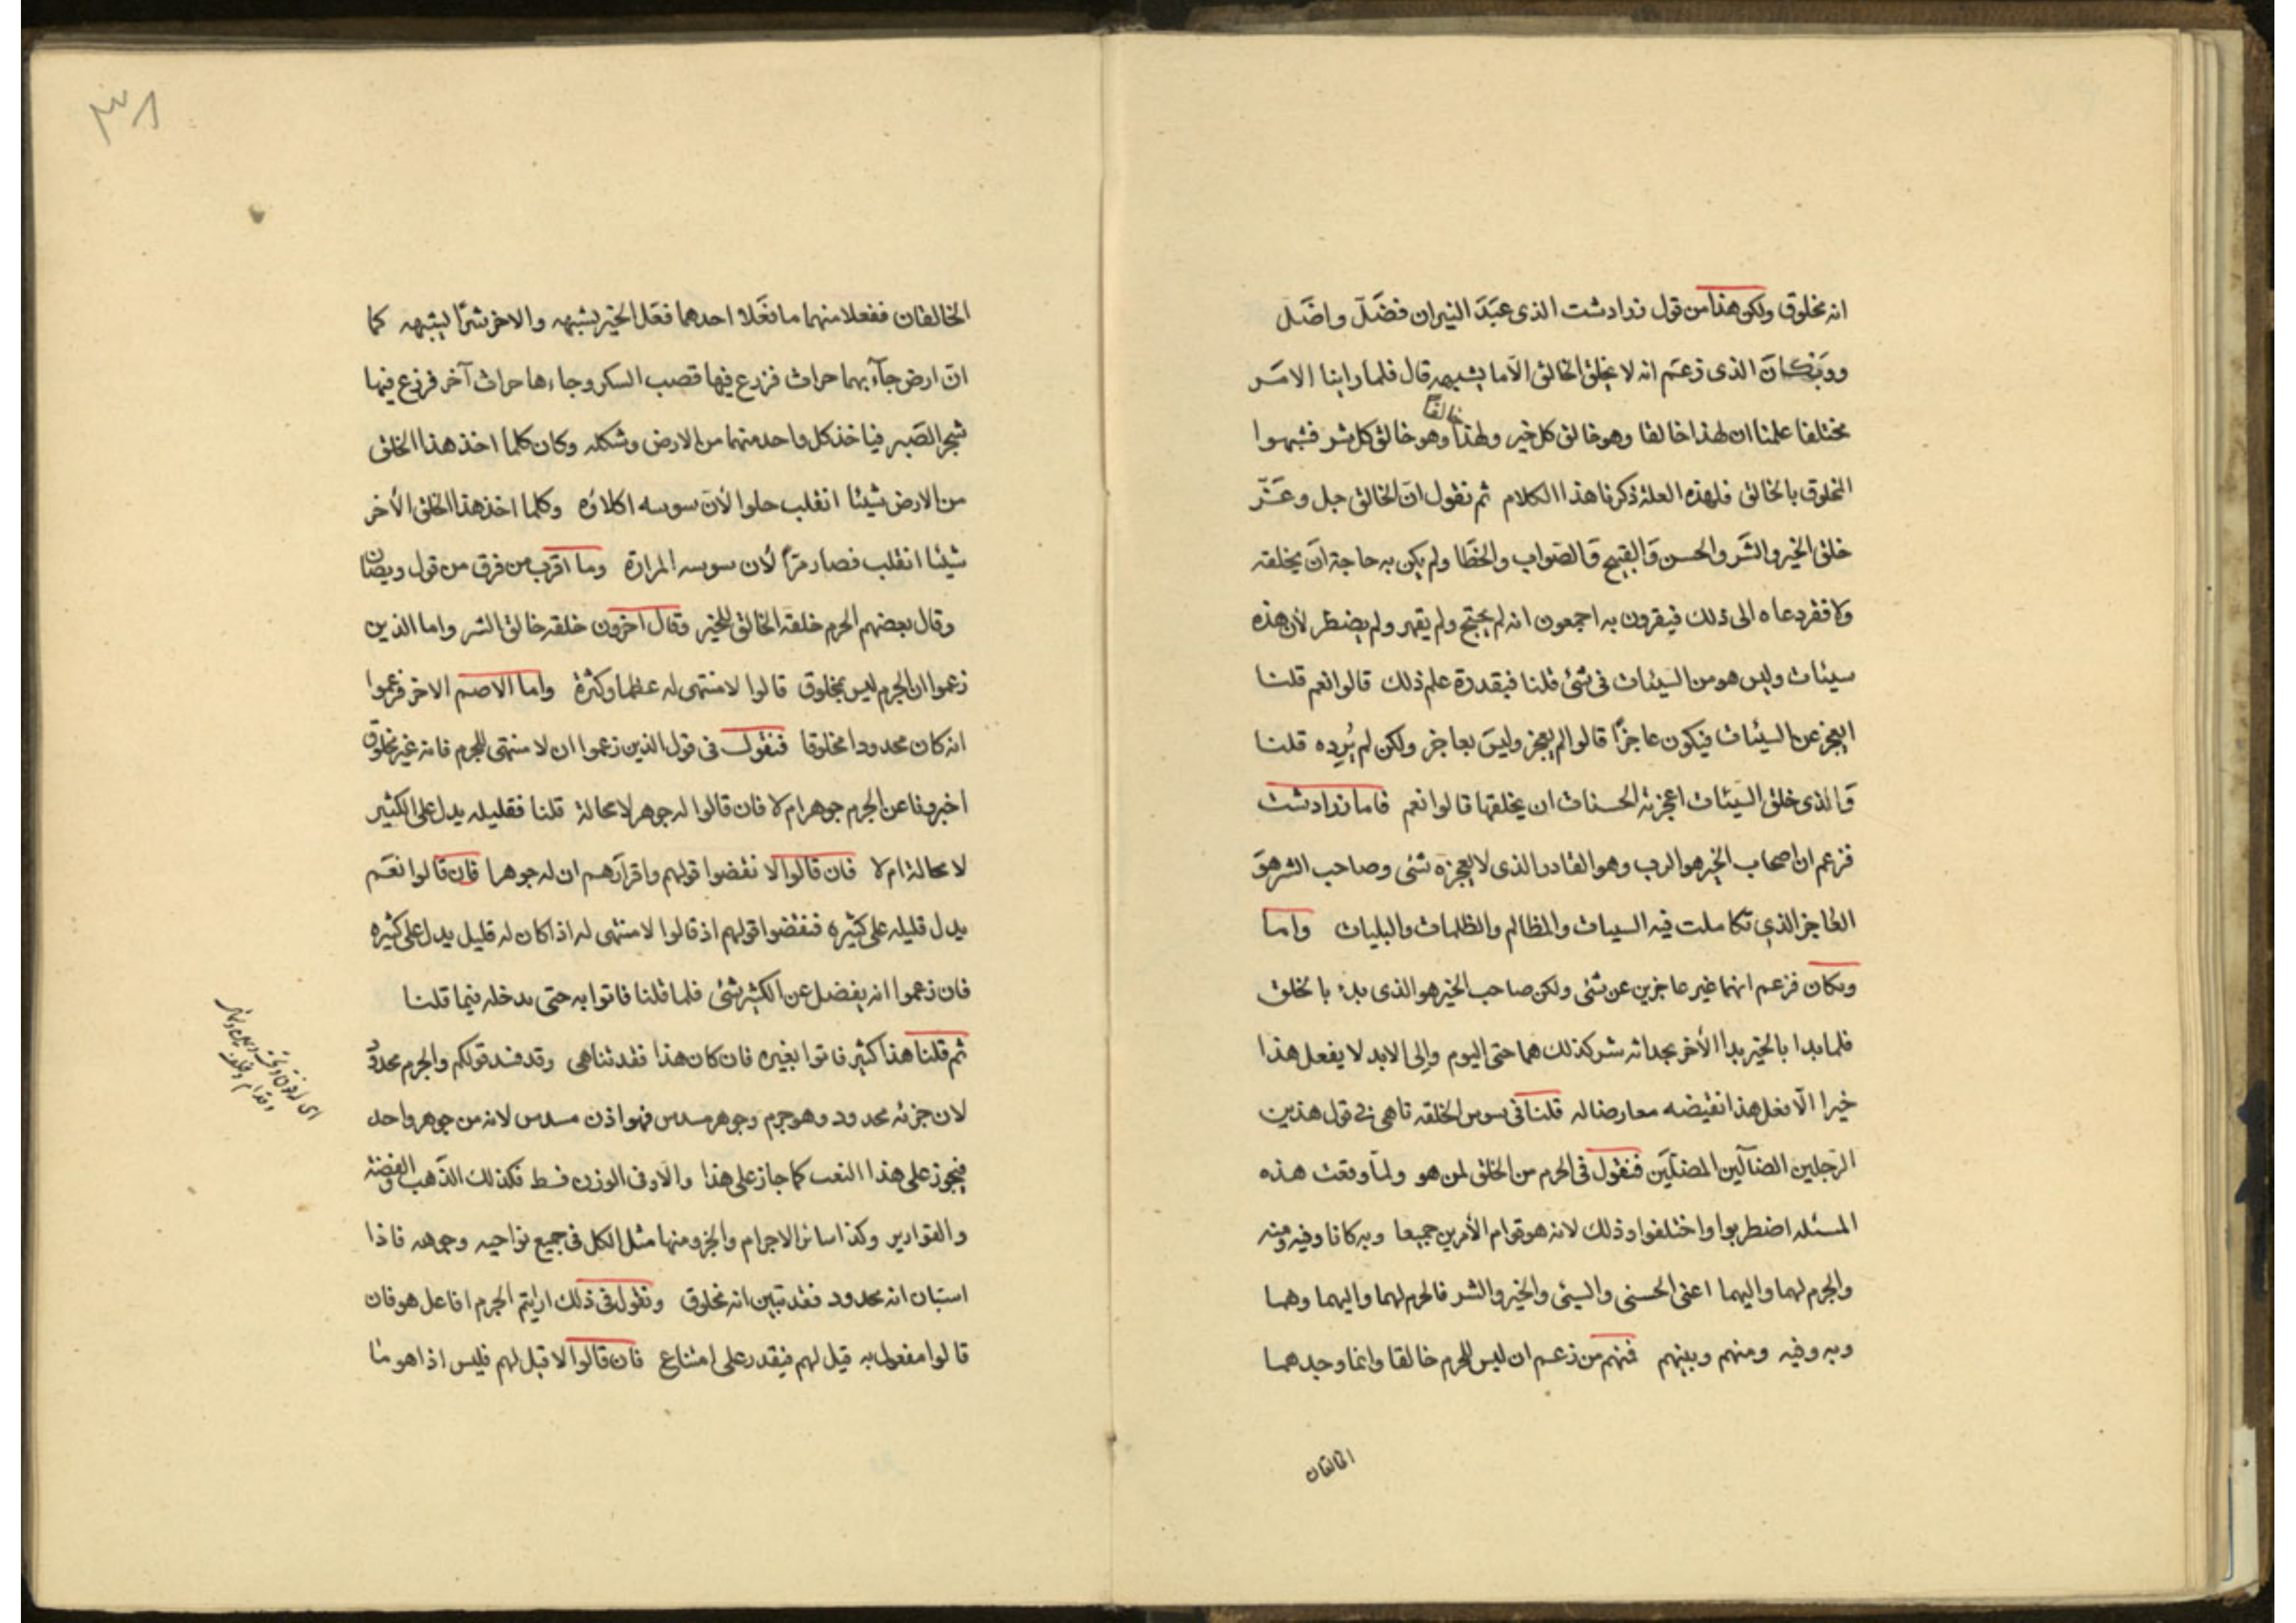 انه مخلوق ولكن هذا من قول زرادشت الذى عَبَدَ النيران فضَلّ واضَلّ
وويَزكان الذى زعَم انه لا يخلق الخالق الّا ما يشبهه قال فلما راينا الامَر
خالقا
مختلفا علمنا ان لهذا خالقا وهو خالق كل خير ولهذا وهو خالق كل شر فشبهوا
المخلوق بالخالق فلهذه العلة ذكرنا هذا الكلام ثم نقول انّ الخالق جل وعَزّ
خلق الخير والشَر والحسن وَالقبيح وَالصَواب والخطَا ولم يكن به حاجة انَ يخلقه
ولا فقر دعاه الى ذلك فيقرون به اجمعون انه لم يحتج ولم يقهر ولم يضطر لأن هذه
سيئات وليس هو من السيئات فى شئ قلنا فبقدرة علم ذلك قالوا نعم قلنا
ايعجز عن السيئات فيكون عاجزًا قالوا لم يعجز وليسَ بعاجز ولكن لم يُرِده قلنا
وَالذى خلق السيَئات اعجزته الحسنات ان يخلقها قالوا نعم فاما زرادشت
فزعم ان اصحاب الخير هو الرب وهو القادر الذى لا يعجزه شئى وصاحب الشر هوَ
العاجز الذي تكاملت فيه السيات والمظالم والظلمات والبليات واما
ويكان فزعم انهما غير عاجزين عن شئى ولكن صاحب الخير هو الذى بدء بالخلق
فلما بدا بالخير بدا الأخر بجدائه شر كذلك هما حتى اليوم وإلى الابد لا يفعل هذا
خيرا الّا فعل هذا نقيضه معارضا له قلنا فى سوس الخلقه ناهى فى قول هذين
الرَجلين الضآلّين المضلّيَن فنقول فى الجرم من الخلق لمن هو ولمّا وقعت هذه
المسئله اضطربوا واختلفوا وذلك لانه هو قوام الأمرين جميعا وبه كانا وفيه ومنه
والجرم لهما واليهما اعنى الحسنى والسيئى والخير والشر فالجرم لهما واليهما وهما
وبه وفيه ومنهم وبينهم فمنهم من زعم ان ليس للجرم خالقا وانما وجدهما
الخالقان
٣٨
الخالقان ففعلا منهما ما فعَلا احدهما فعَل الخير يشبهه والاخر شرًا ليشبهه كما
انّ ارض جآء بهما حراث فزرع فيها قصب السكر وجاءها حراث آخر فزرع فيها
شجر الصَبر فياخذ كل واحد منهما من الارض وشكله وكان كلما اخذ هذا الخلق
من الارض شيئا انقلب حلوا لأن سوسه اكلاؤه وكلما اخذ هذا الخلق الأخر
شيئا انقلب فصار مرًّا لأن سوسه المرارة وما اقرب من فرق من قول ويضان
وقال بعضهم الجرم خلقه الخالق للخير وقال اخرون خلقه خالق الشر واما الذين
زعموا ان الجرم ليس بمخلوق قالوا لا منتهى له عظما وكثرة واما الاصم الاخر فزعموا
انه كان محدودا مخلوقا فنقول فى قول الذين زعموا ان لا منتهى للجرم فانه غير مخلوق
اخبرونا عن الجرم جوهر ام لا فان قالوا له جوهر لا محالة قلنا فقليله يدل على الكثير
لا محالة ام لا فان قالوا لا نقضوا قولهم واقرآرهم ان له جوهرا فان قالوا نعَم
يدل قليله على كثيره فنقضوا قولهم اذ قالوا لا منتهى له اذا كان له قليل يدل على كثيره
فان زعموا انه يفضل عن الكثير شئى فلما قلنا فاتوا به حتى يدخله فيما قلنا
ثم قلنا هذا كثير فاتوا بغيره فان كان هذا فقد تناهى وقد فسد قولكم والجرم محدود
لان جزئه محدود وهو جرم وجوهر مسدس فهو اذن مسدس لانه من جوهر واحد
فيجوز على هذا النعب كما جاز على هذا والّا وفى الوزن قسط فكذلك الذّهب والفضة
والقوارير وكذا سائر الاجرام والجزو منها مثل الكل فى جميع نواحيه وجوهه فاذا
استبان انه محدود فقد تبين انه مخلوق ونقول فى ذلك ارايتم الجرم افاعل هو فان
قالوا مفعول به قيل لهم فيقدر على امتناع فان قالوا لا قبل لهم فليس اذا هو ما